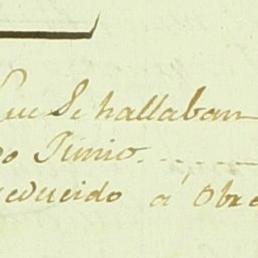 que Se hallaban
do Junio
reducido á Obra